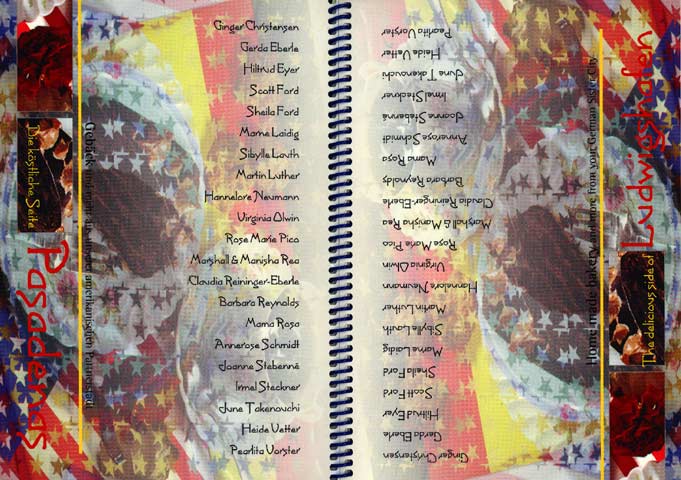 Die köstliche Seite
Pasadenas
Gebäck und mehr aus amerikanischen Partnerstadt
Ginger Christensen
Gerda Eberle
Hiltrud Eyer
Scott Ford
Sheila Ford
Marne Laidig
Sibylle Lauth
Martin Luther
Hannelore Neumann
Virginia Olwin
Rose Marie Pico
Marshall & Manisha Rea
Claudia Reininger-Eberle
Barbara Reynolds
Mama Rosa
Annerose Schmidt
Joanne Stebenné
Irmel Steckner
June Takenouchi
Heide Vetter
Pearlita Vorster
Ginger Christensen
Gerda Eberle
Hiltrud Eyer
Scott Ford
Sheila Ford
Marne Laidig
Sibylle Lauth
Martin Luther
Hannelore Neumann
Virginia Olwin
Rose Marie Pico
Marshall & Manisha Rea
Claudia Reininger-Eberle
Barbara Reynolds
Mama Rosa
Annerose Schmidt
Joanne Stebenné
Irmel Steckner
June Takenouchi
Heide Vetter
Pearlita Vorster
Home made bakery and more from your German Sister City
The delicious side of
Ludwigshafen